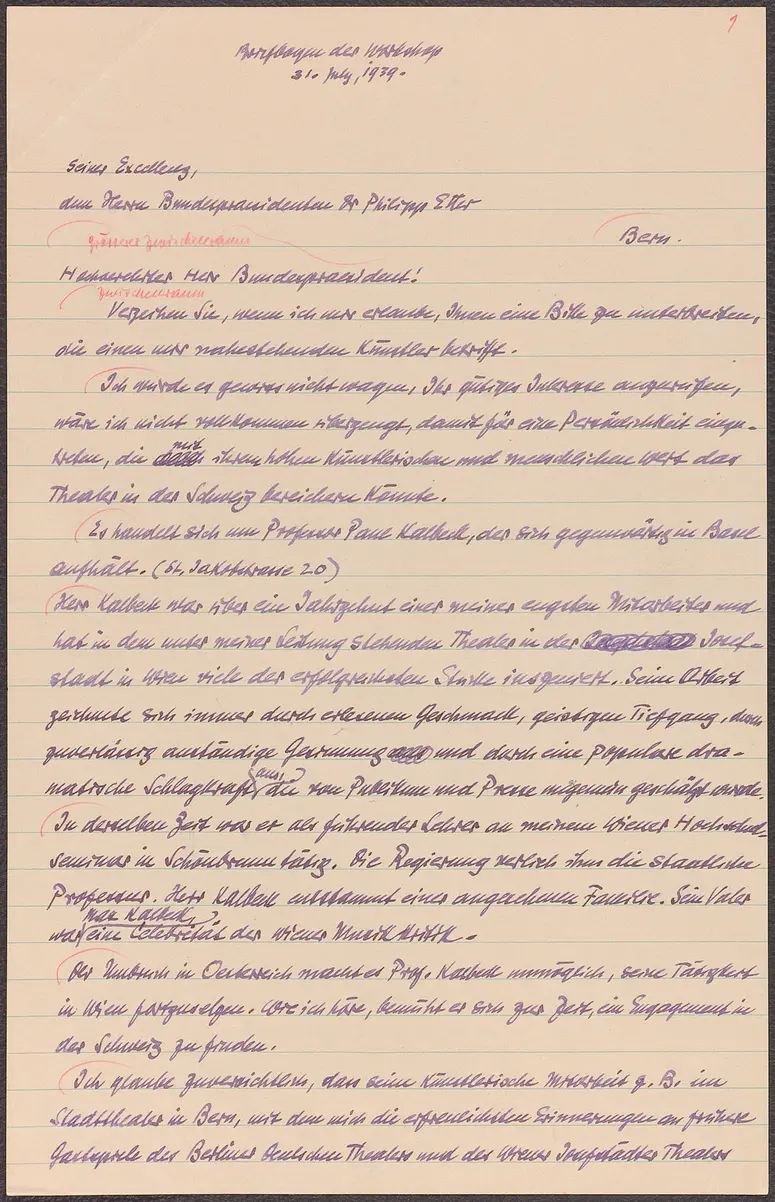 1
Briefbogen der Workshop
31. July, 1939.
Seiner Excellenz,
dem Herrn Bundespraesidenten Dr Philipp Etter
Bern.
grösserer Zwischenraum
Hochverehrter Herr Bundespraesident!
Zwischenraum
Verzeihen Sie, wenn ich mir erlaube, Ihnen eine Bitte zu unterbreiten,
die einen mir nahestehenden Künstler betrifft.
Ich würde es gewiss nicht wagen, Ihr gütiges Interesse anzurufen,
wäre ich nicht vollkommen überzeugt, damit für eine Persönlichkeit einzu-
treten, die mit ihrem hohen künstlerischen und menschlichen Wert das
Theater in der Schweiz bereichern könnte.
Es handelt sich um Professor Paul Kalbeck, der sich gegenwärtig in Basel
aufhält. (St. Jakobstrasse 20)
Herr Kalbeck war über ein Jahrzehnt einer meiner engsten Mitarbeiter und
hat in dem unter meiner Leitung stehenden Theater in der Josef-
stadt in Wien viele der erfolgreichsten Stücke inszeniert. Seine Arbeit
zeichnete sich immer durch erlesenen Geschmack, geistigen Tiefgang, durch
zuverlässig anständige Gesinnung und durch eine populare dra-
matische Schlagkraft aus, die von Publikum und Presse ungemein geschätzt wurde.
In derselben Zeit war er als führender Lehrer an meinem Wiener Hochschul-
seminar in Schönbrunn tätig. Die Regierung verlieh ihm die staatliche
Professur. Herr Kalbeck entstammt einer angesehenen Familie. Sein Vater
Max Kalbeck,
war eine Celebrität der Wiener Musik Kritik.
Der Umbruch in Oesterreich macht es Prof. Kalbeck unmöglich, seine Tätigkeit
in Wien fortzusetzen. Wie ich höre, bemüht er sich zur Zeit, ein Engagement in
der Schweiz zu finden.
Ich glaube zuversichtlich, dass seine künstlerische Mitarbeit z. B. im
Stadttheater in Bern, mit dem mich die erfreulichsten Erinnerungen an frühere
Gastspiele des Berliner Deutschen Theaters und des Wiener Josefstädter Theaters